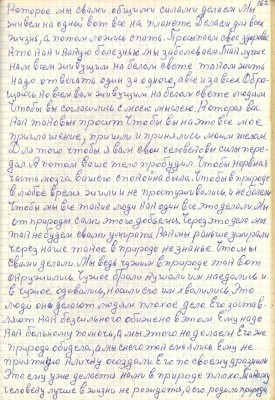 162
Которое мы своими общими силами делаем Мы
живем на одной вот все на планете Делаем для всех
жизнь, а потом ложимь спать. Простаем свое здоровье
А то как и какую болезнью мы заболеваем Нам лучше
Нам всем живущим на белом свете таком жить
Надо отвечать один за одного, а все и за всех Обра-
щаюсь ко всем вам живущим на белом свете людям
Чтобы вы согласились с моею мыслею. Которая вас
Как таковых просит. Чтобы вы на это все мое
приглашение, пришли и принялись моим телом
Для того чтобы я вам свои человеков силы пере-
дал А потом ваше тело пробудил. Чтобы нервная
часть мозга вашего спокойна спала. Чтобы в природе
в любое время жили и не простуживались, и не болели
Чтобы мы все такие люди как один все это делали Мы
от природы сами этого добьемся. Через это дело мы
так не будем сваими умирать. Как мы раньше умирали
через наше такое в природе не знанье. Что мы
сваими делали. Мы ведь чужим в природе так вот
окружились. Чужое брали кушали им наедались и
в чужое одевались, носили его им хвалились Это
люди они делают людям плохое дело. Его застав-
ляют как бессильного обижено в этом Ему надо
как больному помочь, а мы этого не делаем Его же
природа обидела, а мы с него так смеялись Ему не
приятную кличку создали Его по своему дразним
Это ему уже делается нами в природе плохо Такому
человеку лучше в жизни не рождатя, а его родила природа